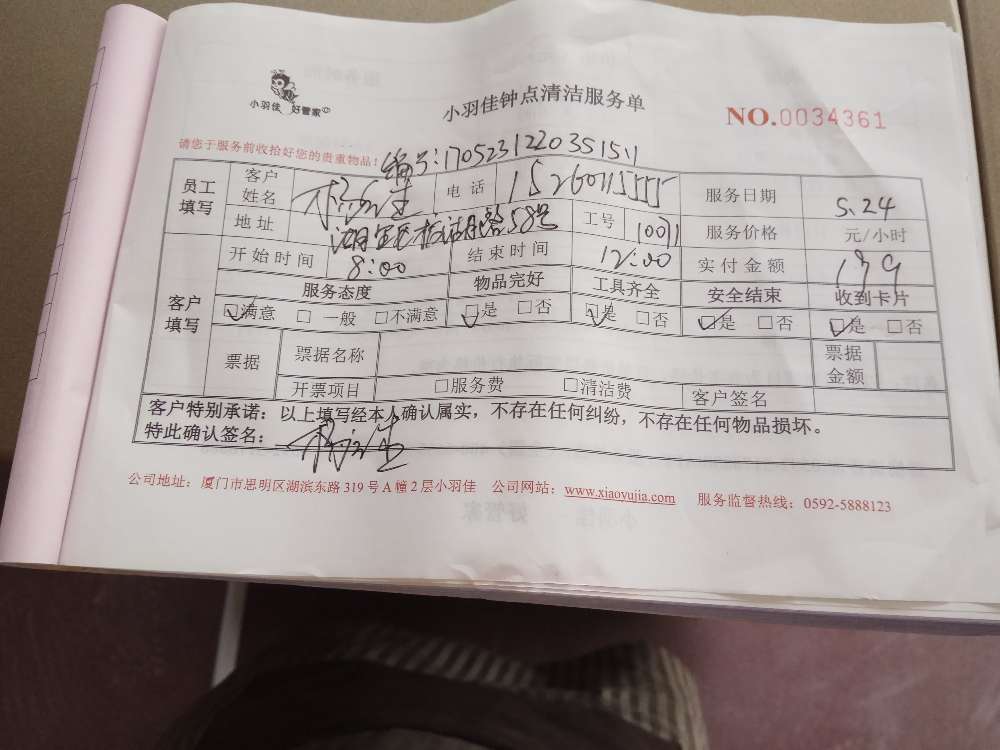 小羽佳 好管家
小羽佳钟点清洁服务单
NO.0034361
请您于服务前收拾好您的贵重物品!
编号:1705231220351511
员工填写 客户姓名 电话 服务日期 5.24
地址 58号 工号 服务价格 元/小时
开始时间 8:00 结束时间 12:00 实付金额 179
客户填写 服务态度 物品完好 工具齐全 安全结束 收到卡片
☑满意 □一般 □不满意 ☑是 □否 ☑是 □否 ☑是 □否 ☑是 □否
票据 票据名称 票据金额
开票项目 □服务费 □清洁费 客户签名
客户特别承诺:以上填写经本人确认属实,不存在任何纠纷,不存在任何物品损坏。
特此确认签名:
公司地址:厦门市思明区湖滨东路319号A幢2层小羽佳 公司网站:www.xiaoyujia.com 服务监督热线:0592-5888123